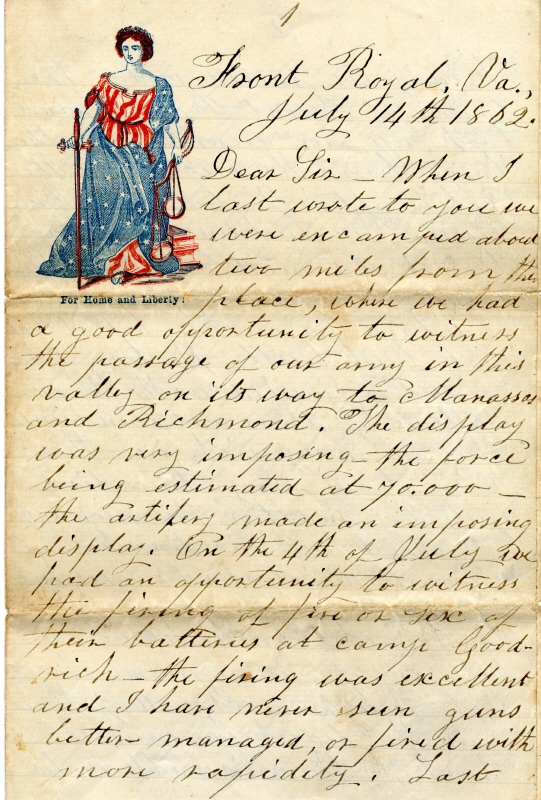 1
Front Royal, Va.,
July 14th 1862.
Dear Sir - When I
last wrote to you we
were encamped about
two miles from this
For Home and Liberty!
place, where we had
a good opportunity to witness
the passage of our army in this
valley on its way to Manassas
and Richmond. The display
was very imposing - the force
being estimated at 70.000 -
the artilery made an imposing
display. On the 4th of July we
had an opportunity to witness
the firing of five or six of
their batteries at camp Good-
rich - the firing was excellent
and I have never seen guns
better managed, or fired with
more rapidity. Last